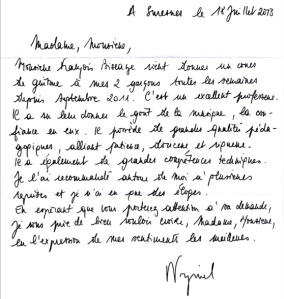 A Suresnes le 12 Juillet 2013
Madame, Monsieur,
Monsieur François vient donner un cours
de guitare à mes 2 garçons toutes les semaines
depuis septembre 2011. C'est un excellent professeur.
Il a su leur donner le goût de la musique, la con-
fiance en eux. Il possède de grandes qualités péda-
gogiques, alliant patience, douceur et rigueur.
Il a également de grandes compétences techniques.
Je l'ai recommandé autour de moi à plusieurs
reprises et je n'ai eu que des éloges.
En espérant que vous porterez attention à sa demande,
je vous prie de bien vouloir croire, Madame, Monsieur,
en l'expression de mes sentiments les meilleurs.